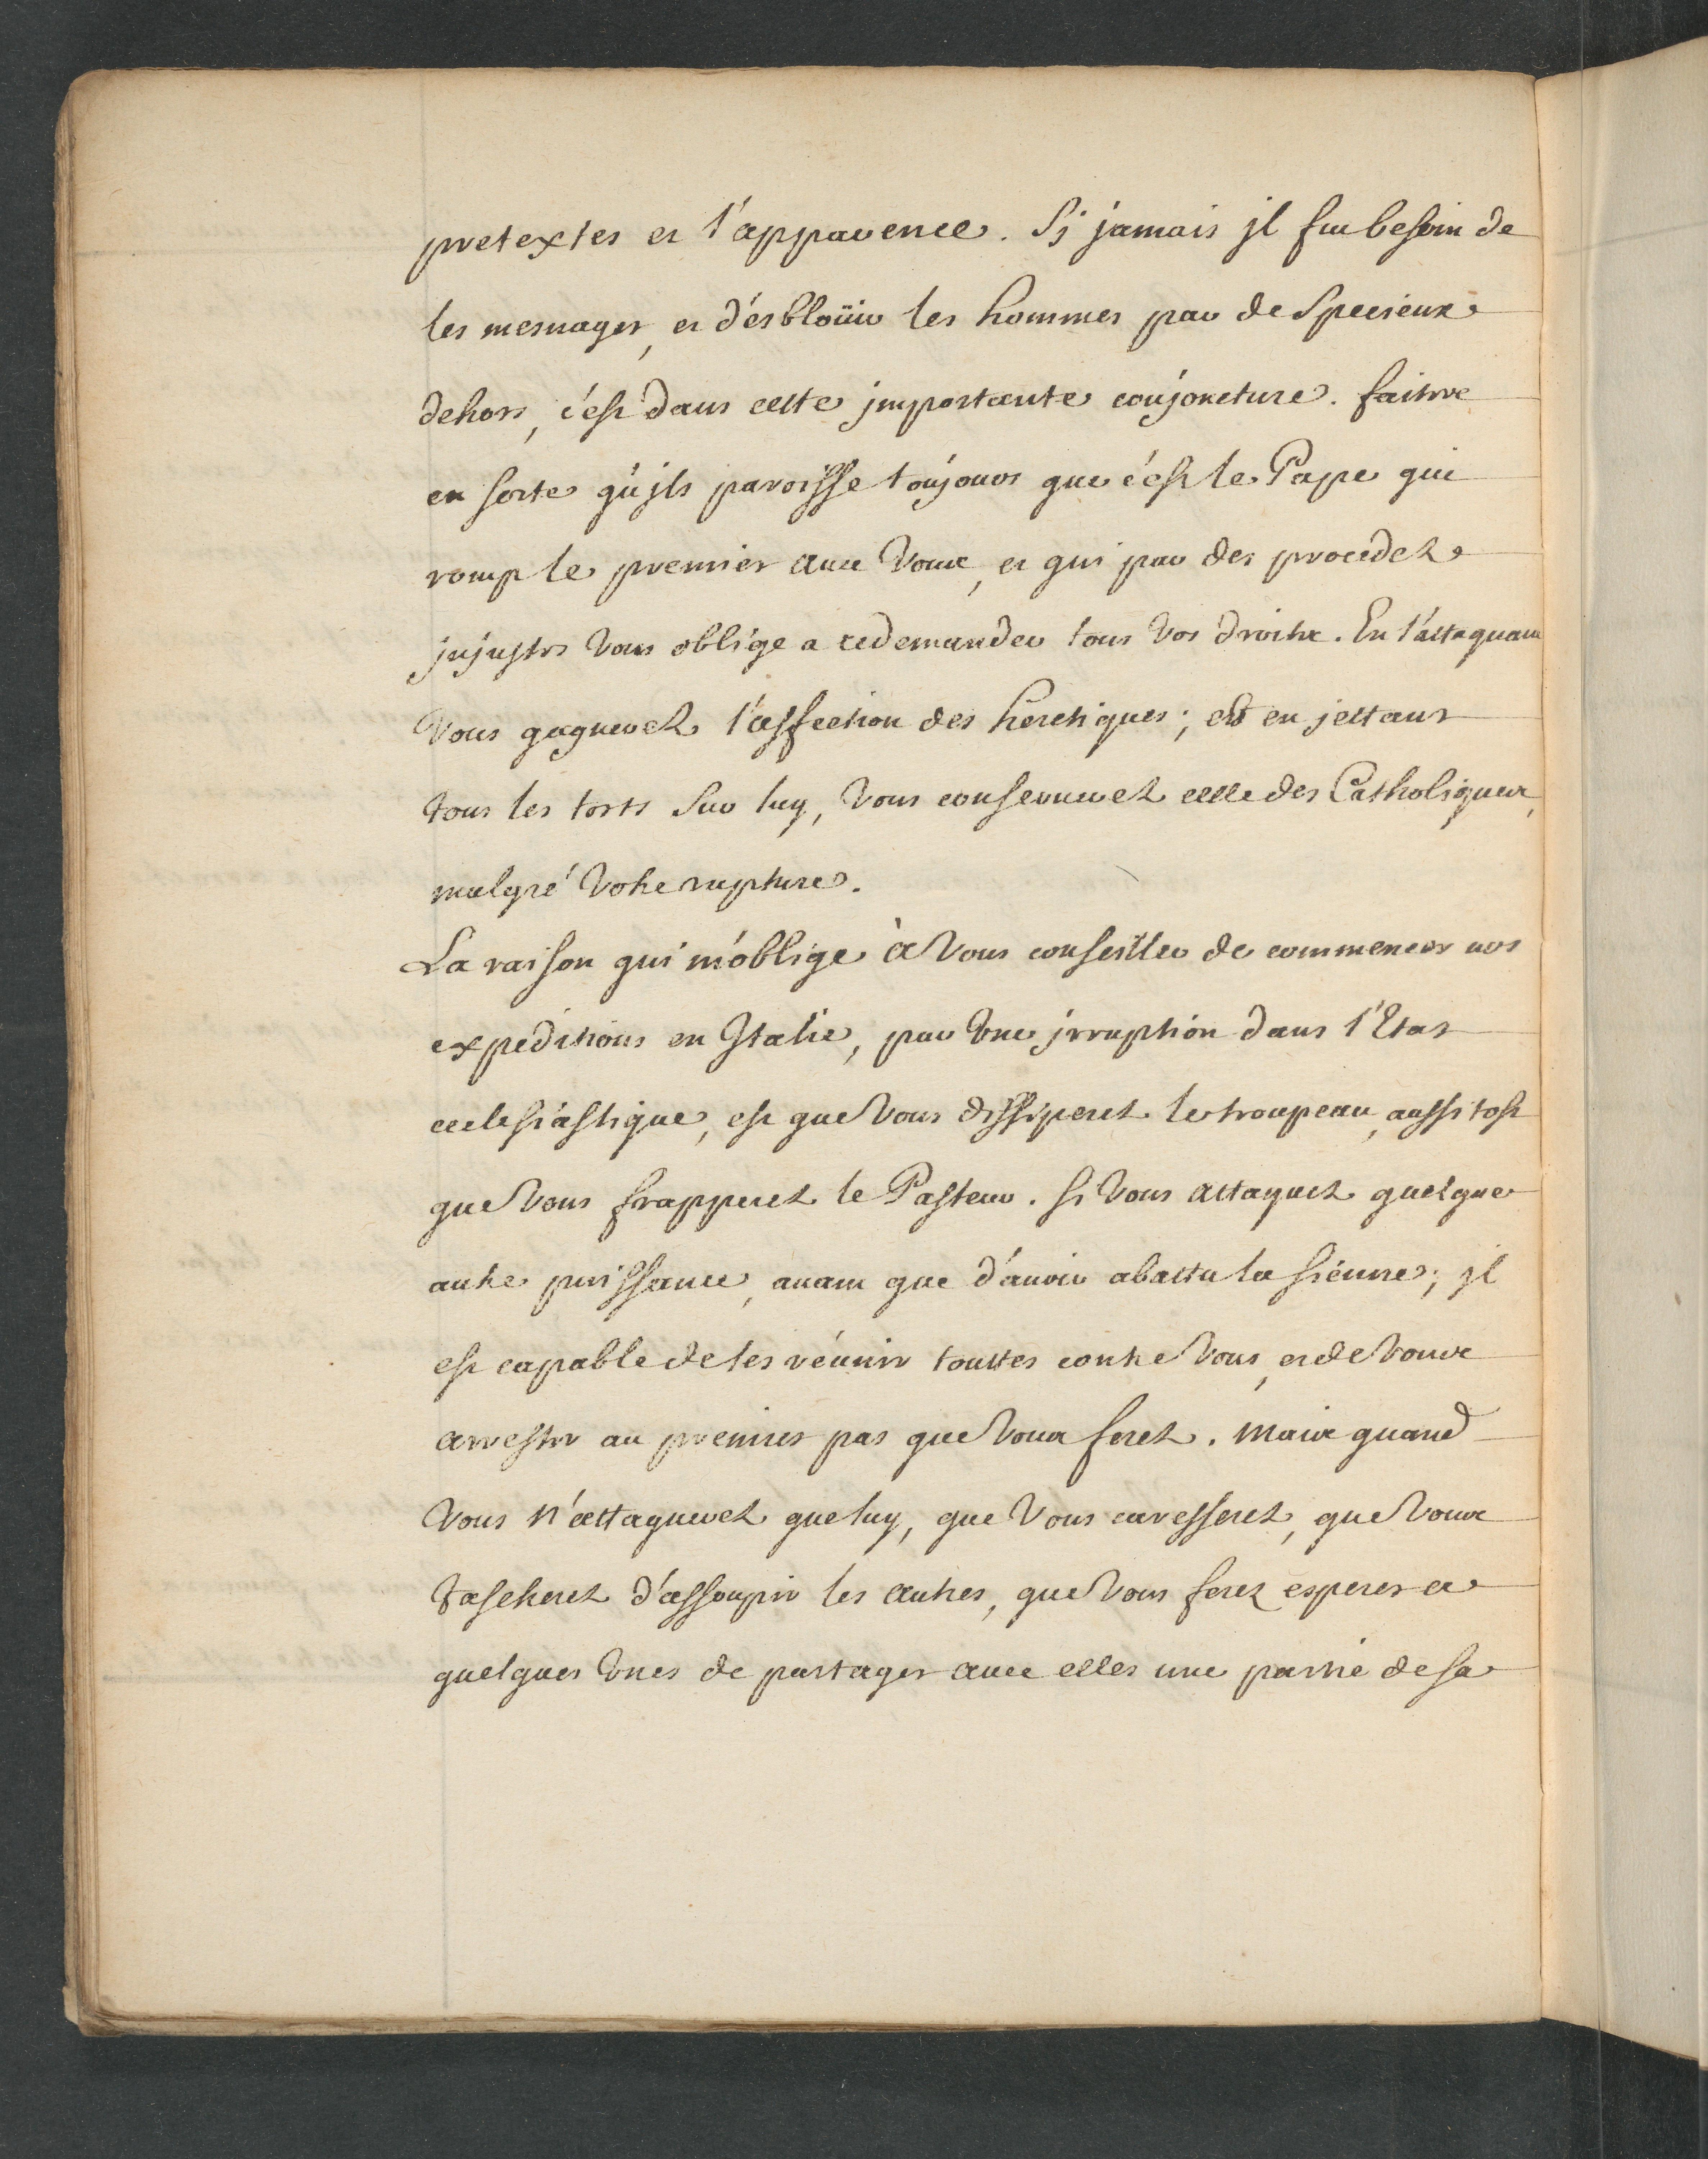 pretextes et l'apparence. Sj jamais jl fut besoin de
les mesnager, et d'ésbloüir les hommes par de specieux
dehors, c'est dans cette jmportante conjoncture. faitre
en sorte qu'jls paroisse toûjours que c'est le Pape qui
romp le premier avec vous, et qui par des procedez
jnjustes vous oblige a redemander tous vos droits. En l'attaquant
vous gagnerez l'affection des heretiques; et en jettant
tous les torts sur luy, vous conserverez celle des Catholiques,
malgré votre rupture.
La raison qui m'oblige à vous conseiller de commencer nos
expeditions en Jtalie, par une jrruption dans l'Etat
ecclesiastique, est que vous dissiperez le troupeau, aussi tost
que vous frapperez le Pasteur. si vous attaquez quelque
autre puissance, avant que d'avoir abattu la siénne; jl
est capable de les réunir touttes contre vous, et de vous
arrester au premier pas que vous ferez. mais quand
vous n'attaquerez que luy, que vous caresserez, que vous
tascherez d'assoupir les autres, que vous ferez esperer a
quelques unes de partager avec elles une partie de sa